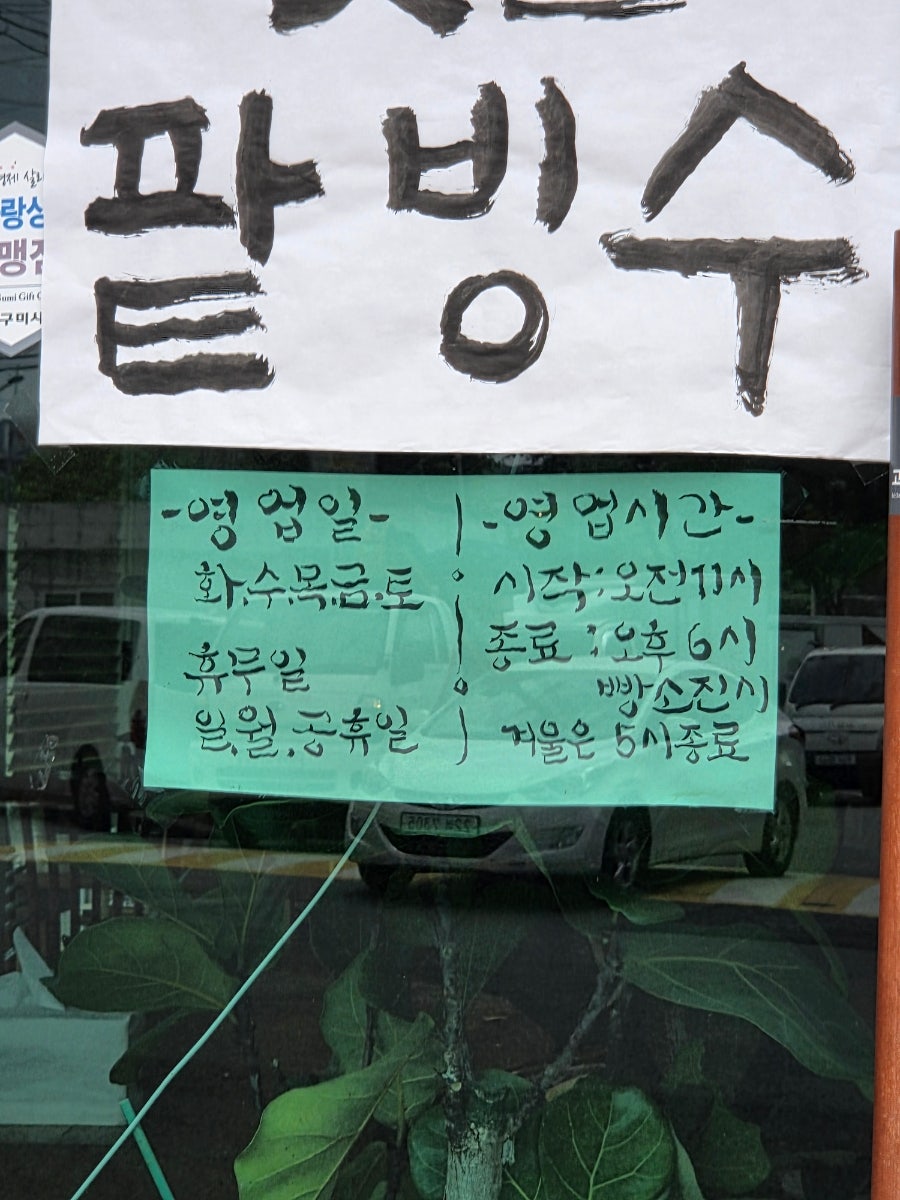 팥빙수
-영업일-
화.수.목.금.토
휴무일
일.월.공휴일
-영업시간-
시작:오전11시
종료:오후 6시
빵소진시
겨울은 5시종료
구미시